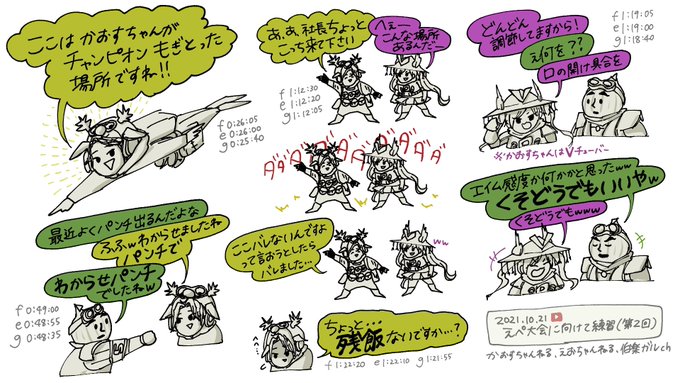 ここは かおすちゃんが
チャンピオン もぎとった
場所ですね!!
f 0:26:05
e 0:26:00
g 0:25:40
最近よくパンチ出るんだよな
ふふwわからせましたね
パンチで
わからせパンチ
でしたねw
f 0:49:00
e 0:48:55
g 0:48:35
あ、あ、社長ちょっと
こっち来て下さい
へぇー
こんな場所
あるんだー
f 1:12:30
e 1:12:20
g 1:12:05
ダダダダダダダダ
ここバレないんですよ
って言おうとしたら
バレました…
ww
ちょっと…
残飯ないですか…?
f 1:22:20 e 1:22:10 g 1:21:55
どんどん
調節してますから!
え何を??
口の開け具合を
f 1:19:05
e 1:19:00
g 1:18:40
※かおすちゃんはVチューバー
エイム感度か何かかと思ったww
くそどうでもいいやw
くそどうでもwww
2021.10.21
えぺ大会に向けて練習(第2回)
かおすちゃんねる、えおちゃんねる、伯楽ガルch